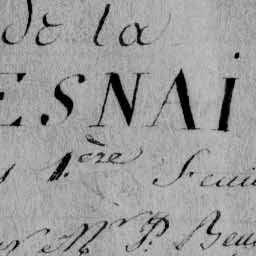 de la
ESNAI
1.ère Feui
Mr P. Beau